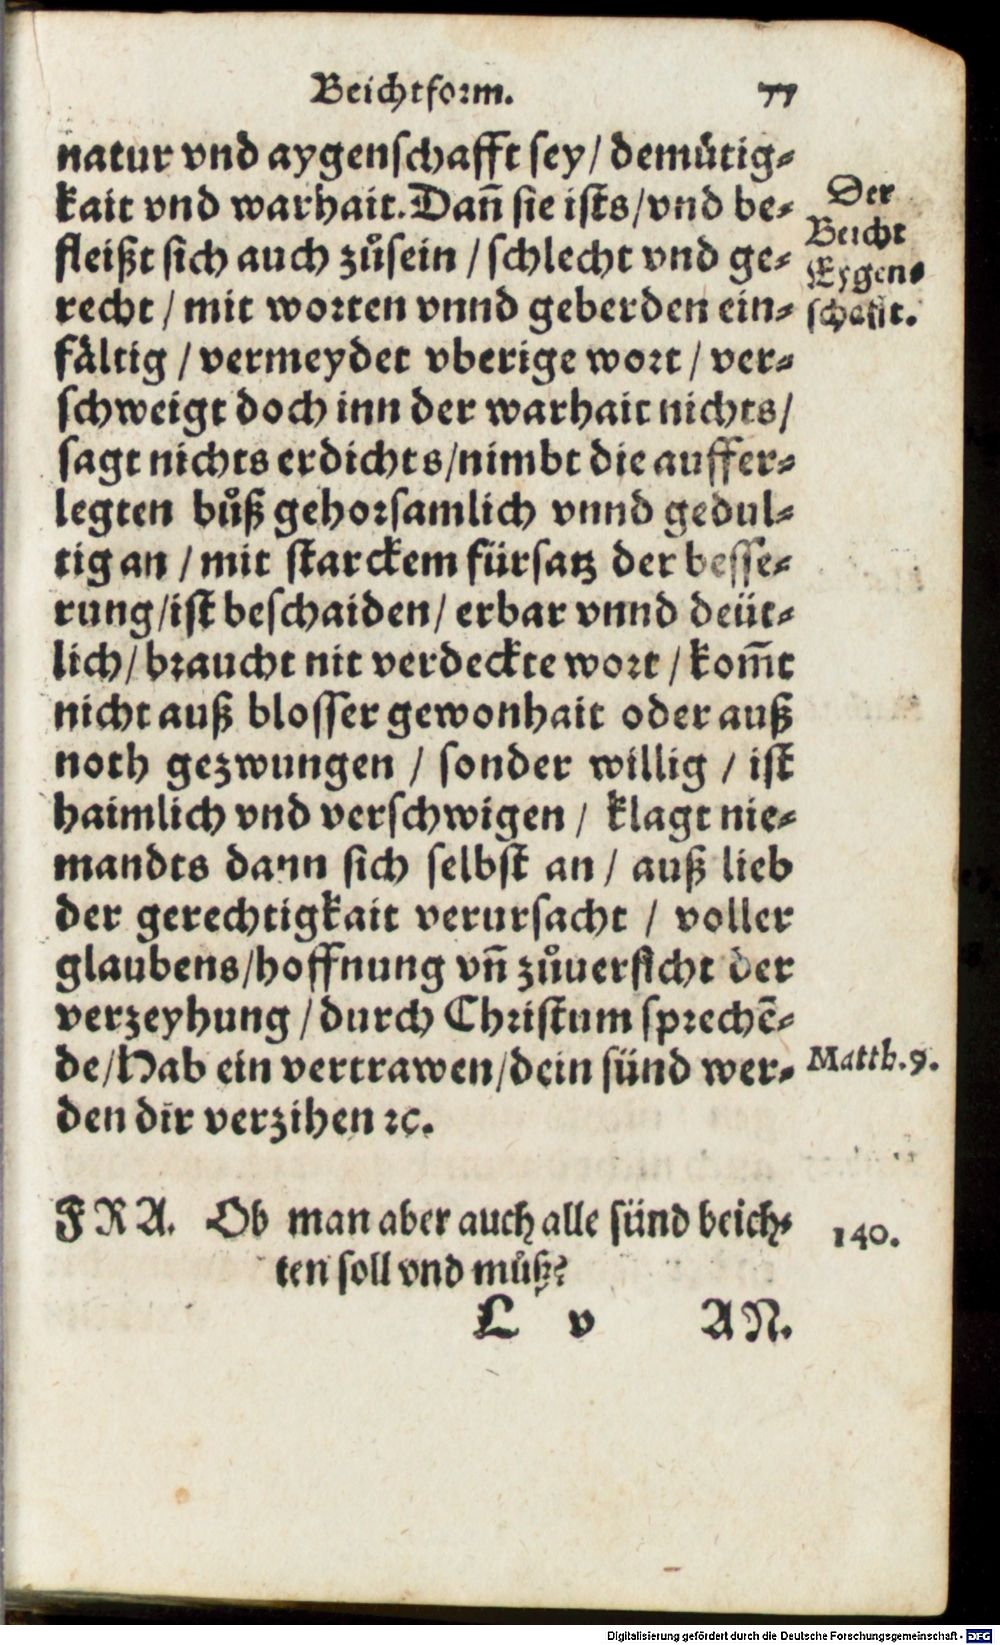 Beichtform. 77
natur vnd aygenschafft sey/ demütig-
kait vnd warhait. Dañ sie ists/ vnd be-
fleißt sich auch zůsein / schlecht vnd ge-
recht / mit worten vnnd geberden ein-
fältig / vermeydet vberige wort / ver-
schweigt doch inn der warhait nichts/
sagt nichts erdichts/nimbt die auffer-
legten bůß gehorsamlich vnnd gedul-
tig an / mit starckem fürsatz der besse-
rung/ist beschaiden/ erbar vnnd deüt-
lich/ braucht nit verdeckte wort / kom̃t
nicht auß blosser gewonhait oder auß
noth gezwungen / sonder willig / ist
haimlich vnd verschwigen / klagt nie-
mandts dann sich selbst an / auß lieb
der gerechtigkait verursacht / voller
glaubens/hoffnung vñ zůuersicht der
verzeyhung / durch Christum sprechẽ-
de/Hab ein vertrawen/dein sünd wer-
den dir verzihen ꝛc.
Der
Beicht
Eygen-
schafft.
Matth. 9.
FRA. Ob man aber auch alle sünd beich-
ten soll vnd můß?
140.
L v AN.
Digitalisierung gefördert durch die Deutsche Forschungsgemeinschaft - DFG